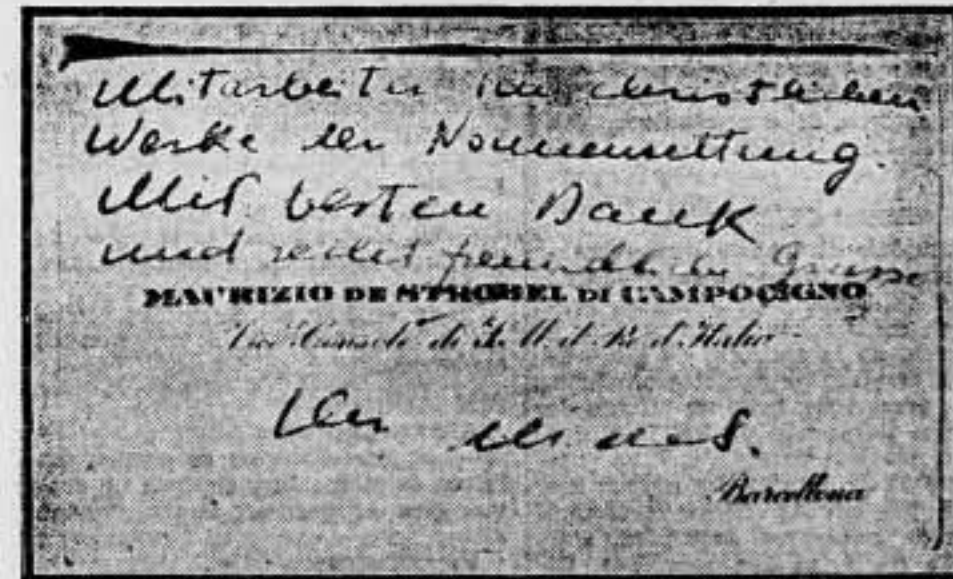 Mitarbeiter im christlichen
Werke der Nonnenrettung.
Mit besten Dank
und recht freundliche Grüsse
MAURIZIO DE STROBEL DI CAMPOCIGNO
Vice Console di S. M. il Re d'Italia
Ihr
Barcellona